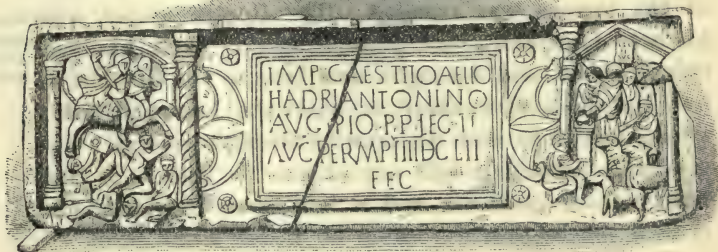 IMP CAES TITO AELIO
HADRI ANTONINO
AVG PIO P.P. LEG II
AVG PER M P IIII DC LII
FEC